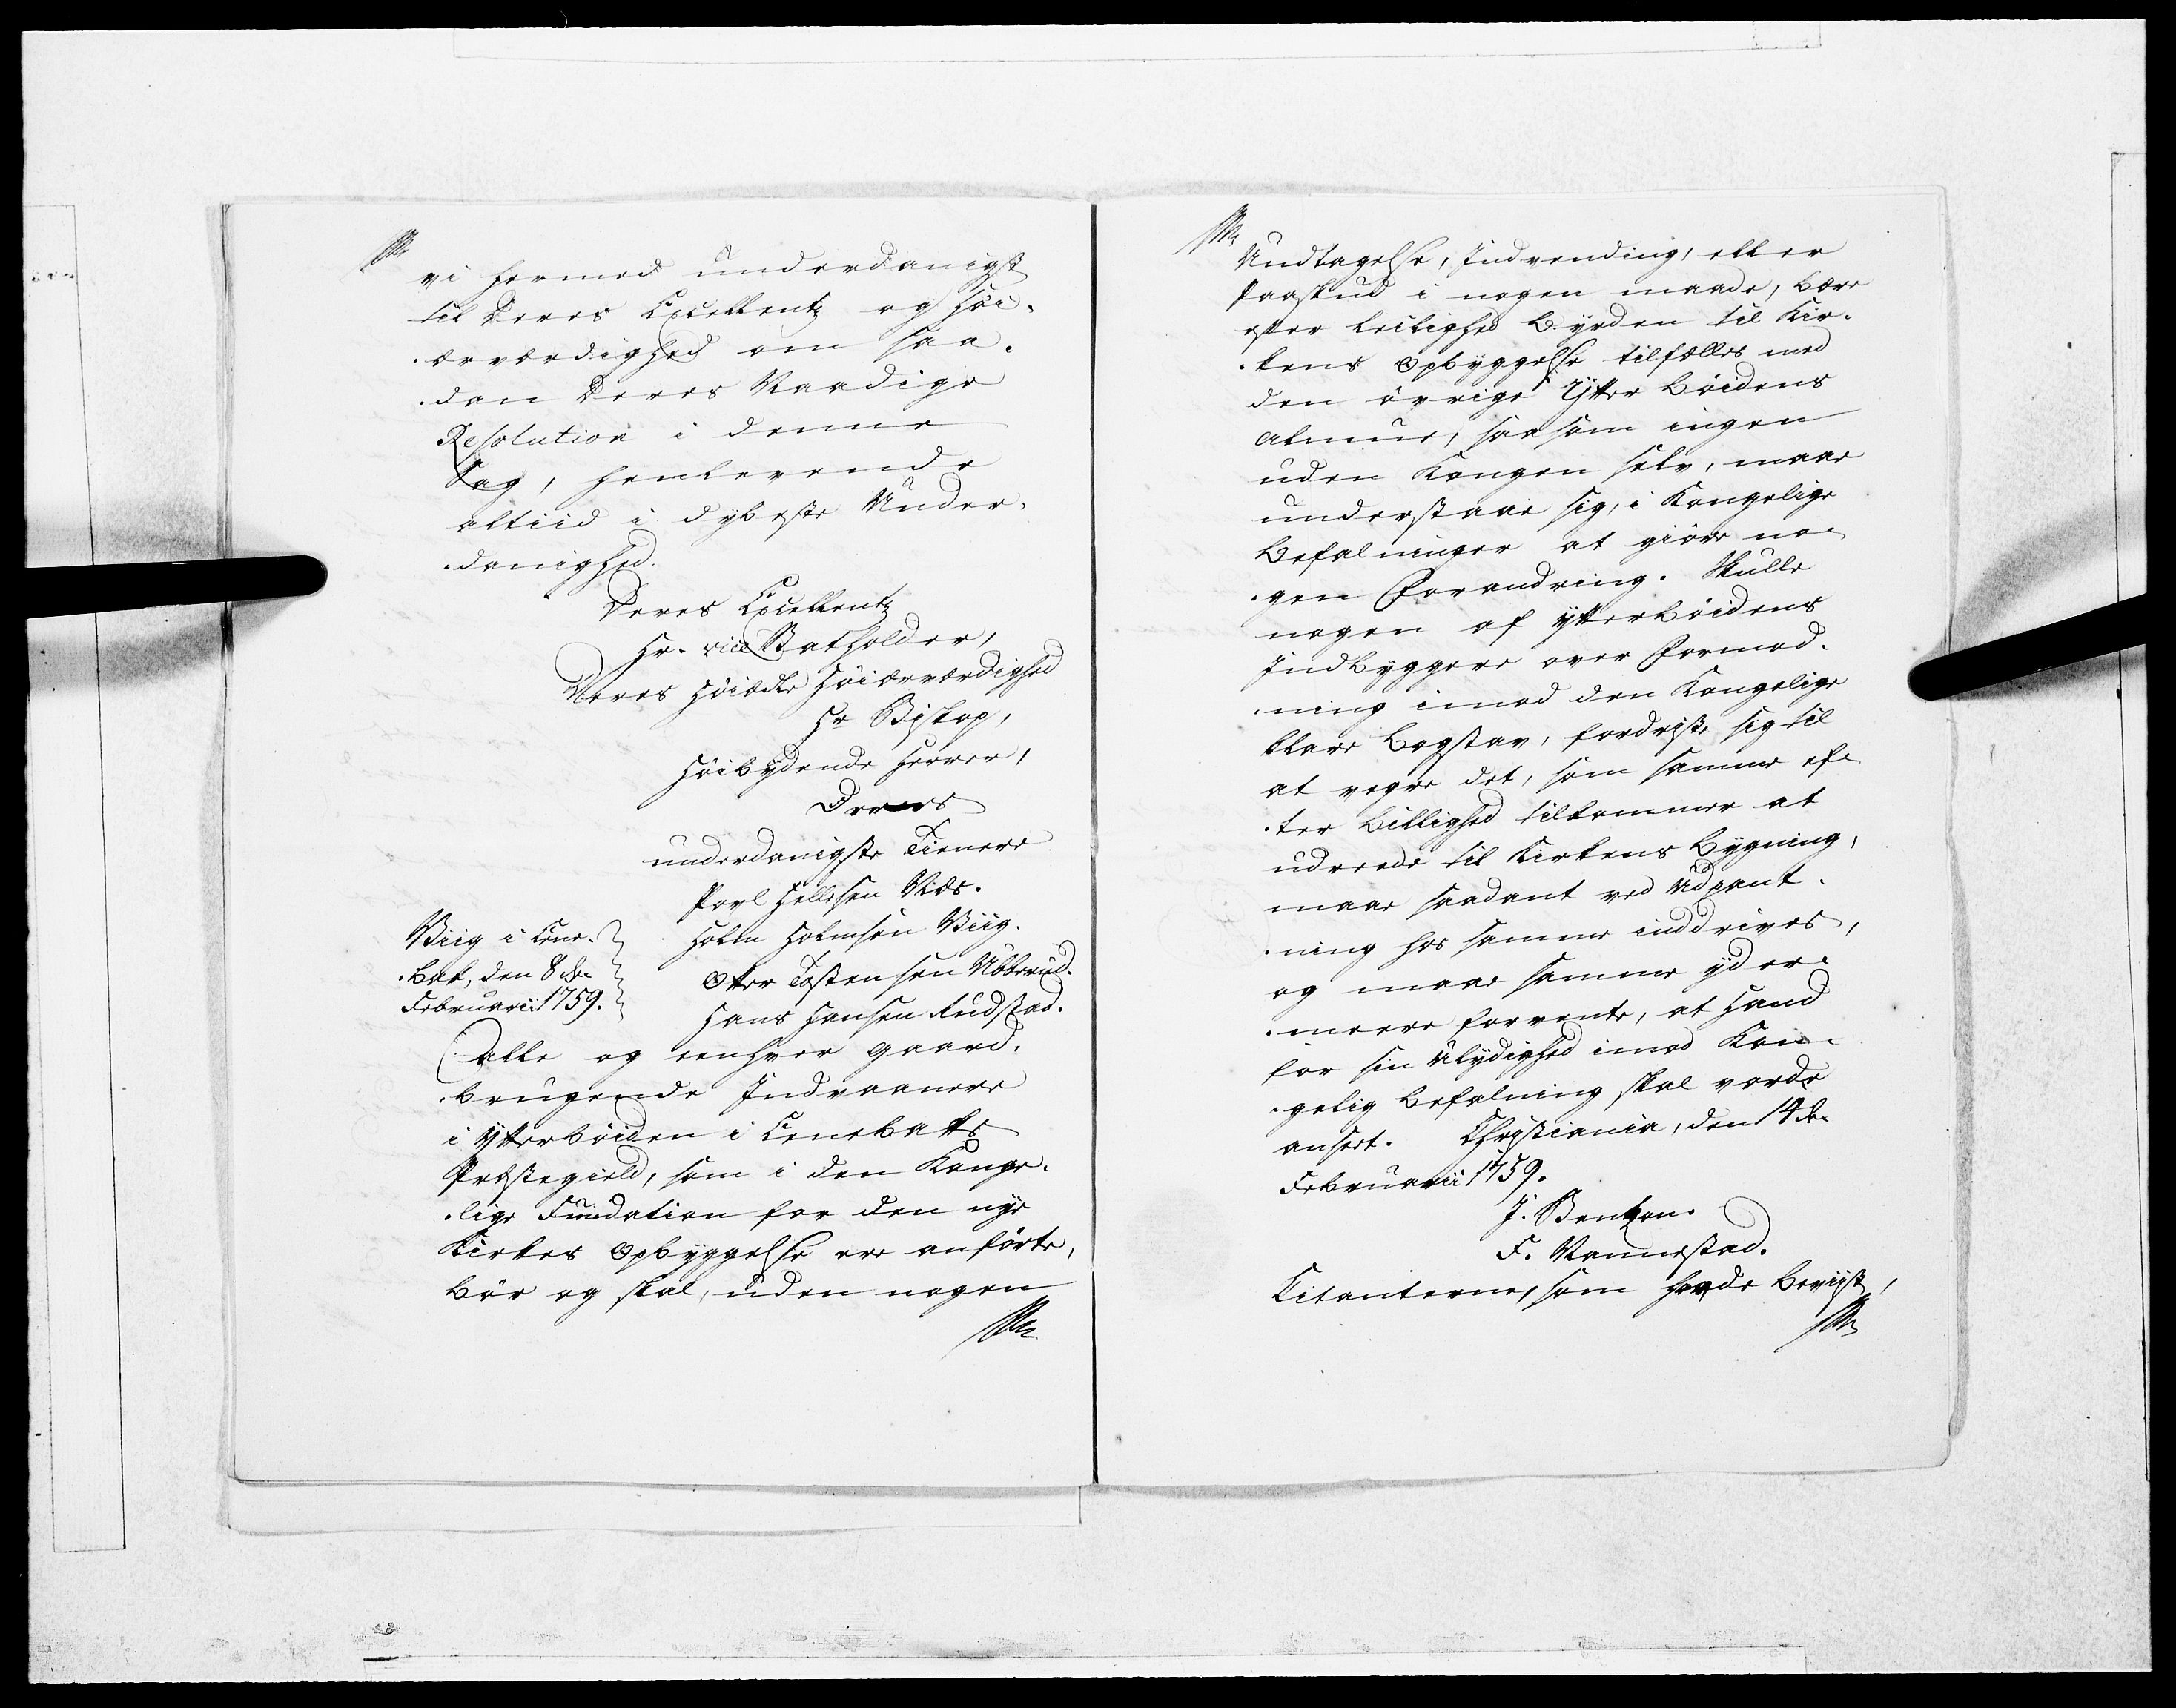 vi hermed underdanigst
til Deres Excellentz og Høi-
-ærværdighed om saa-
-dan Deres Naadige
Resolution i denne
Sag, henlevende
altiid i dybeste Under-
-danighed.
Deres Excellentz
Hr. vice Statholder,
Deres Høiædle Høiærværdighed
Hr Biskop,
Høibydende Herrer,
Deres
underdanigste Tienere
Povl Hellesen Næs.
Holm Holmsen Viig.
Otter Tostensen Ubberud.
Hans Hansen Rudstad.
Viig i Ene-
-bak, den 8de
Februarii 1759.
Alle og eenhver gaard-
-brugende Indvaanere
i Ytterbøiden i Enebaks
Præstegield, som i den Konge-
-lige Fundation for den nye
Kirkes Opbyggelse ere anførte,
bør og skal, uden nogen
Undtagelse, Indvending, eller
Paaskud i nogen maade, bære
efter Leilighed Byrden til Kir-
-kens Opbyggelse tilfælles med
den øvrige Ytter Bøidens
Almue, saasom ingen
uden Kongen selv, maae
understaae sig, i Kongelige
Befalninger at giøre no-
-gen Forandring. Skulle
nogen af Ytterbøidens
Indbyggere over Formod-
-ning imod den Kongelige
klare Bogstav, fordriste sig til
at vegre det, som samme ef-
-ter Billighed tilkommer at
udreede til Kirkens Bygning,
maae saadant ved Udpant-
-ning hos samme inddrives,
og maae samme yder-
-meere forvente, at Hand
for sin Ulydighed imod Kon-
-gelig Befalning skal vorde
anseet. Christiania, den 14de
Februarii 1759.
J. Bentzon.
F. Nannestad.
Citanterne, som havde beviist,